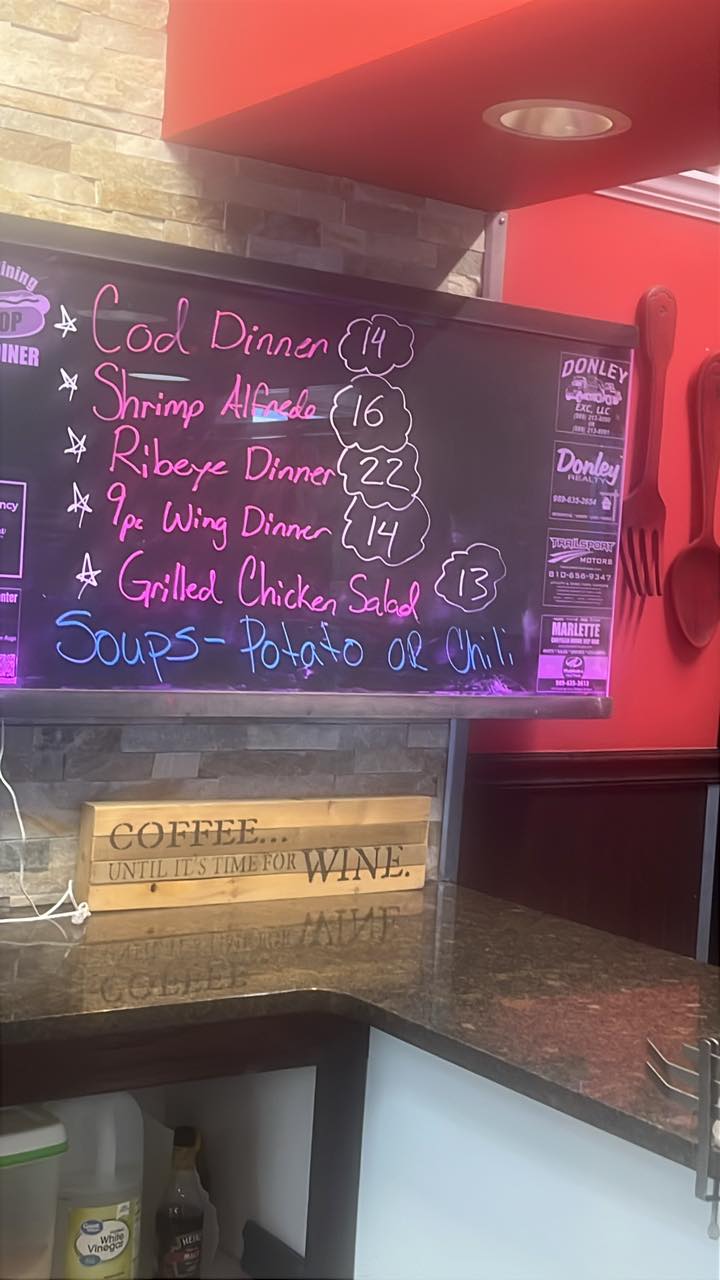 ining
OP
DINER
☆ Cod Dinner 14
☆ Shrimp Alfredo 16
☆ Ribeye Dinner 22
☆ 9pc Wing Dinner 14
☆ Grilled Chicken Salad 13
Soups- Potato OR Chili
DONLEY
EXC, LLC
OR
Donley
REALTY
989-635-2654
TRAILSPORT
MOTORS
810-656-9347
MARLETTE
989-635-3613
ncy
nter
COFFEE...
UNTIL IT'S TIME FOR WINE.
Great Value
White
Vinegar
HEIN